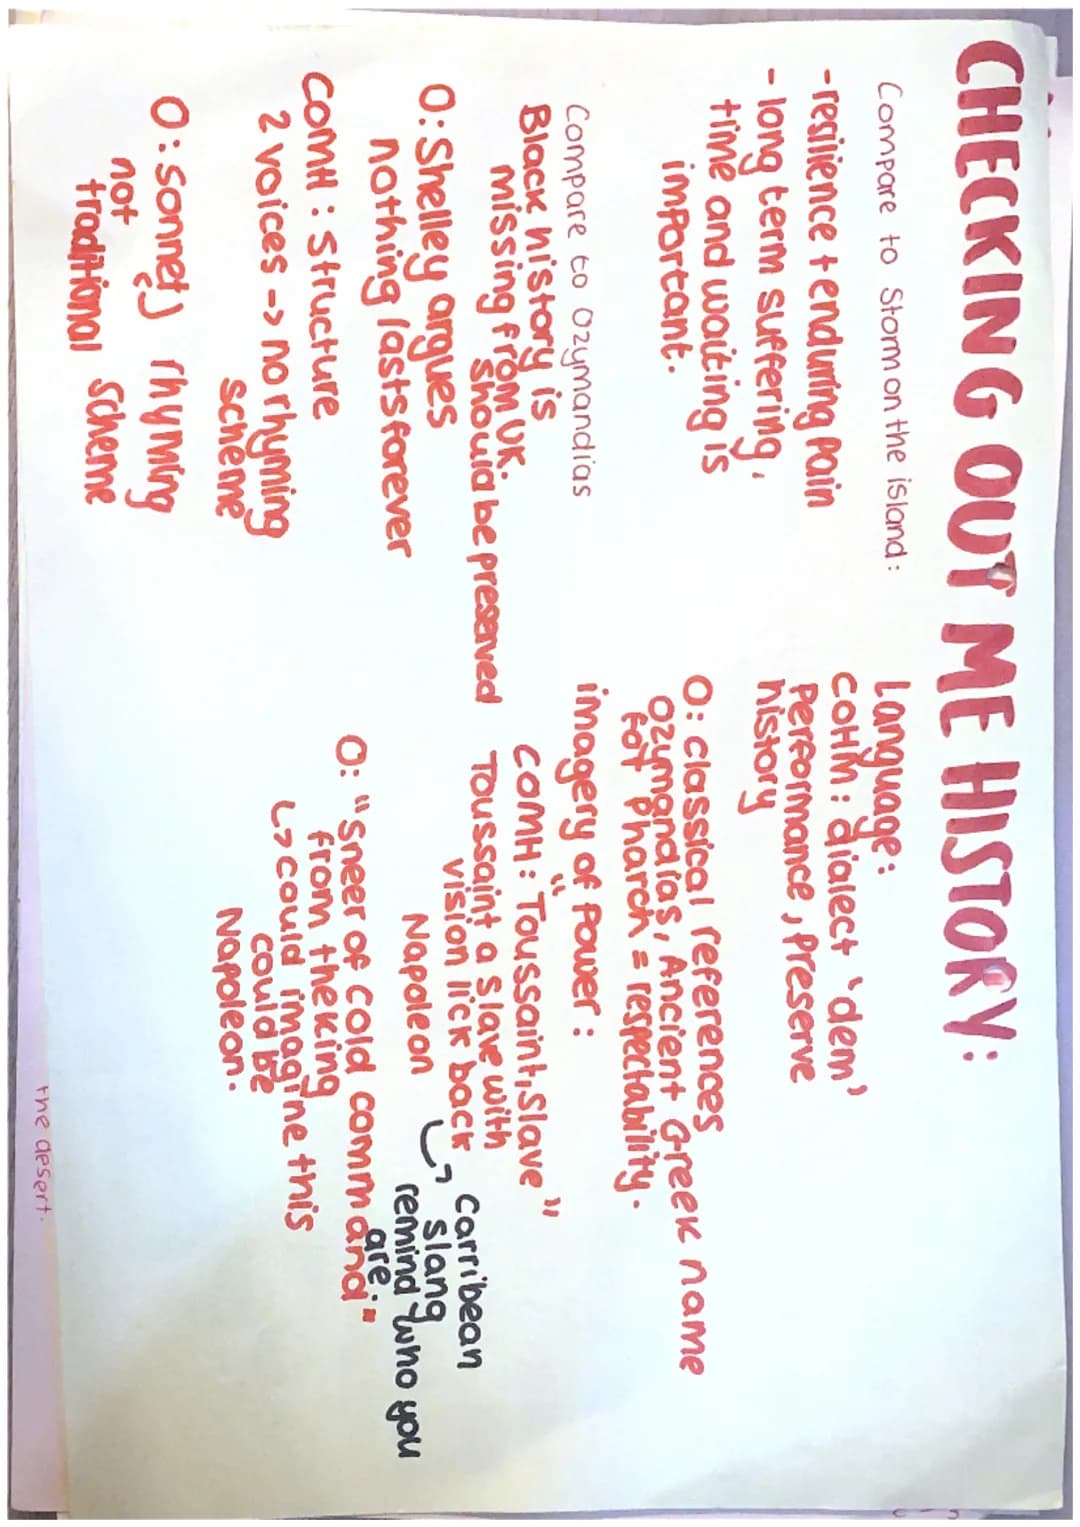 CHECKING OUT ME HISTORY:
Compare to Storm on the island:
- resilience + enduring pain
- long term suffering,
time and waiting is
important.
Compare to Ozymandias
Black history is
missing from UK.
should be preserved
O: Shelley argues
nothing lasts forever
COMH: structure
2 voices -> no rhyming
scheme
O: sonnet) rhyming
not
traditional scheme
Language:
COHM: dialect 'dem'
performance, preserve
history
O: classical references
Ozymandias, Ancient Greek name
for Pharoh = respectability.
imagery of power:
COMH: "Toussaint, Slave"
Toussaint a slave with
vision lick back
Napoleon
↳ Carribean
slang
remind who you
are.
O: "sneer of cold command"
from the king
↳ could imagine this
could be
Napoleon.
the desert.